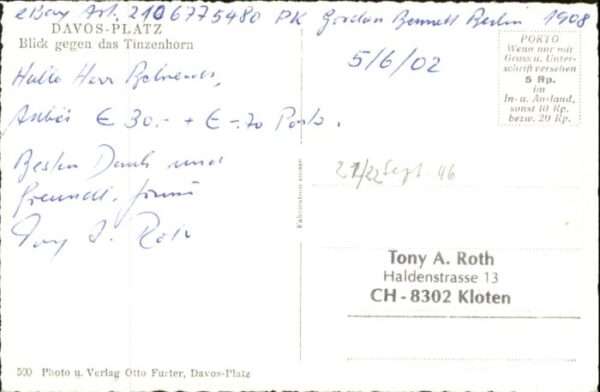 eBay Art. 2106775480 PK Gordon Bennett Berlin 1908
DAVOS-PLATZ
Blick gegen das Tinzenhorn
5/6/02
PORTO
Wenn nur mit
Gruss u. Unter-
schrift versehen
5 Rp.
im
In- u. Ausland,
sonst 10 Rp.
bezw. 20 Rp.
Hallo Herr
€ 30.- + € -.70 Porto.
Besten Dank und
freundl.
Tony A. Roth
21/22 Sept. 46
Tony A. Roth
Haldenstrasse 13
CH - 8302 Kloten
500 Photo u. Verlag Otto Furter, Davos-Platz